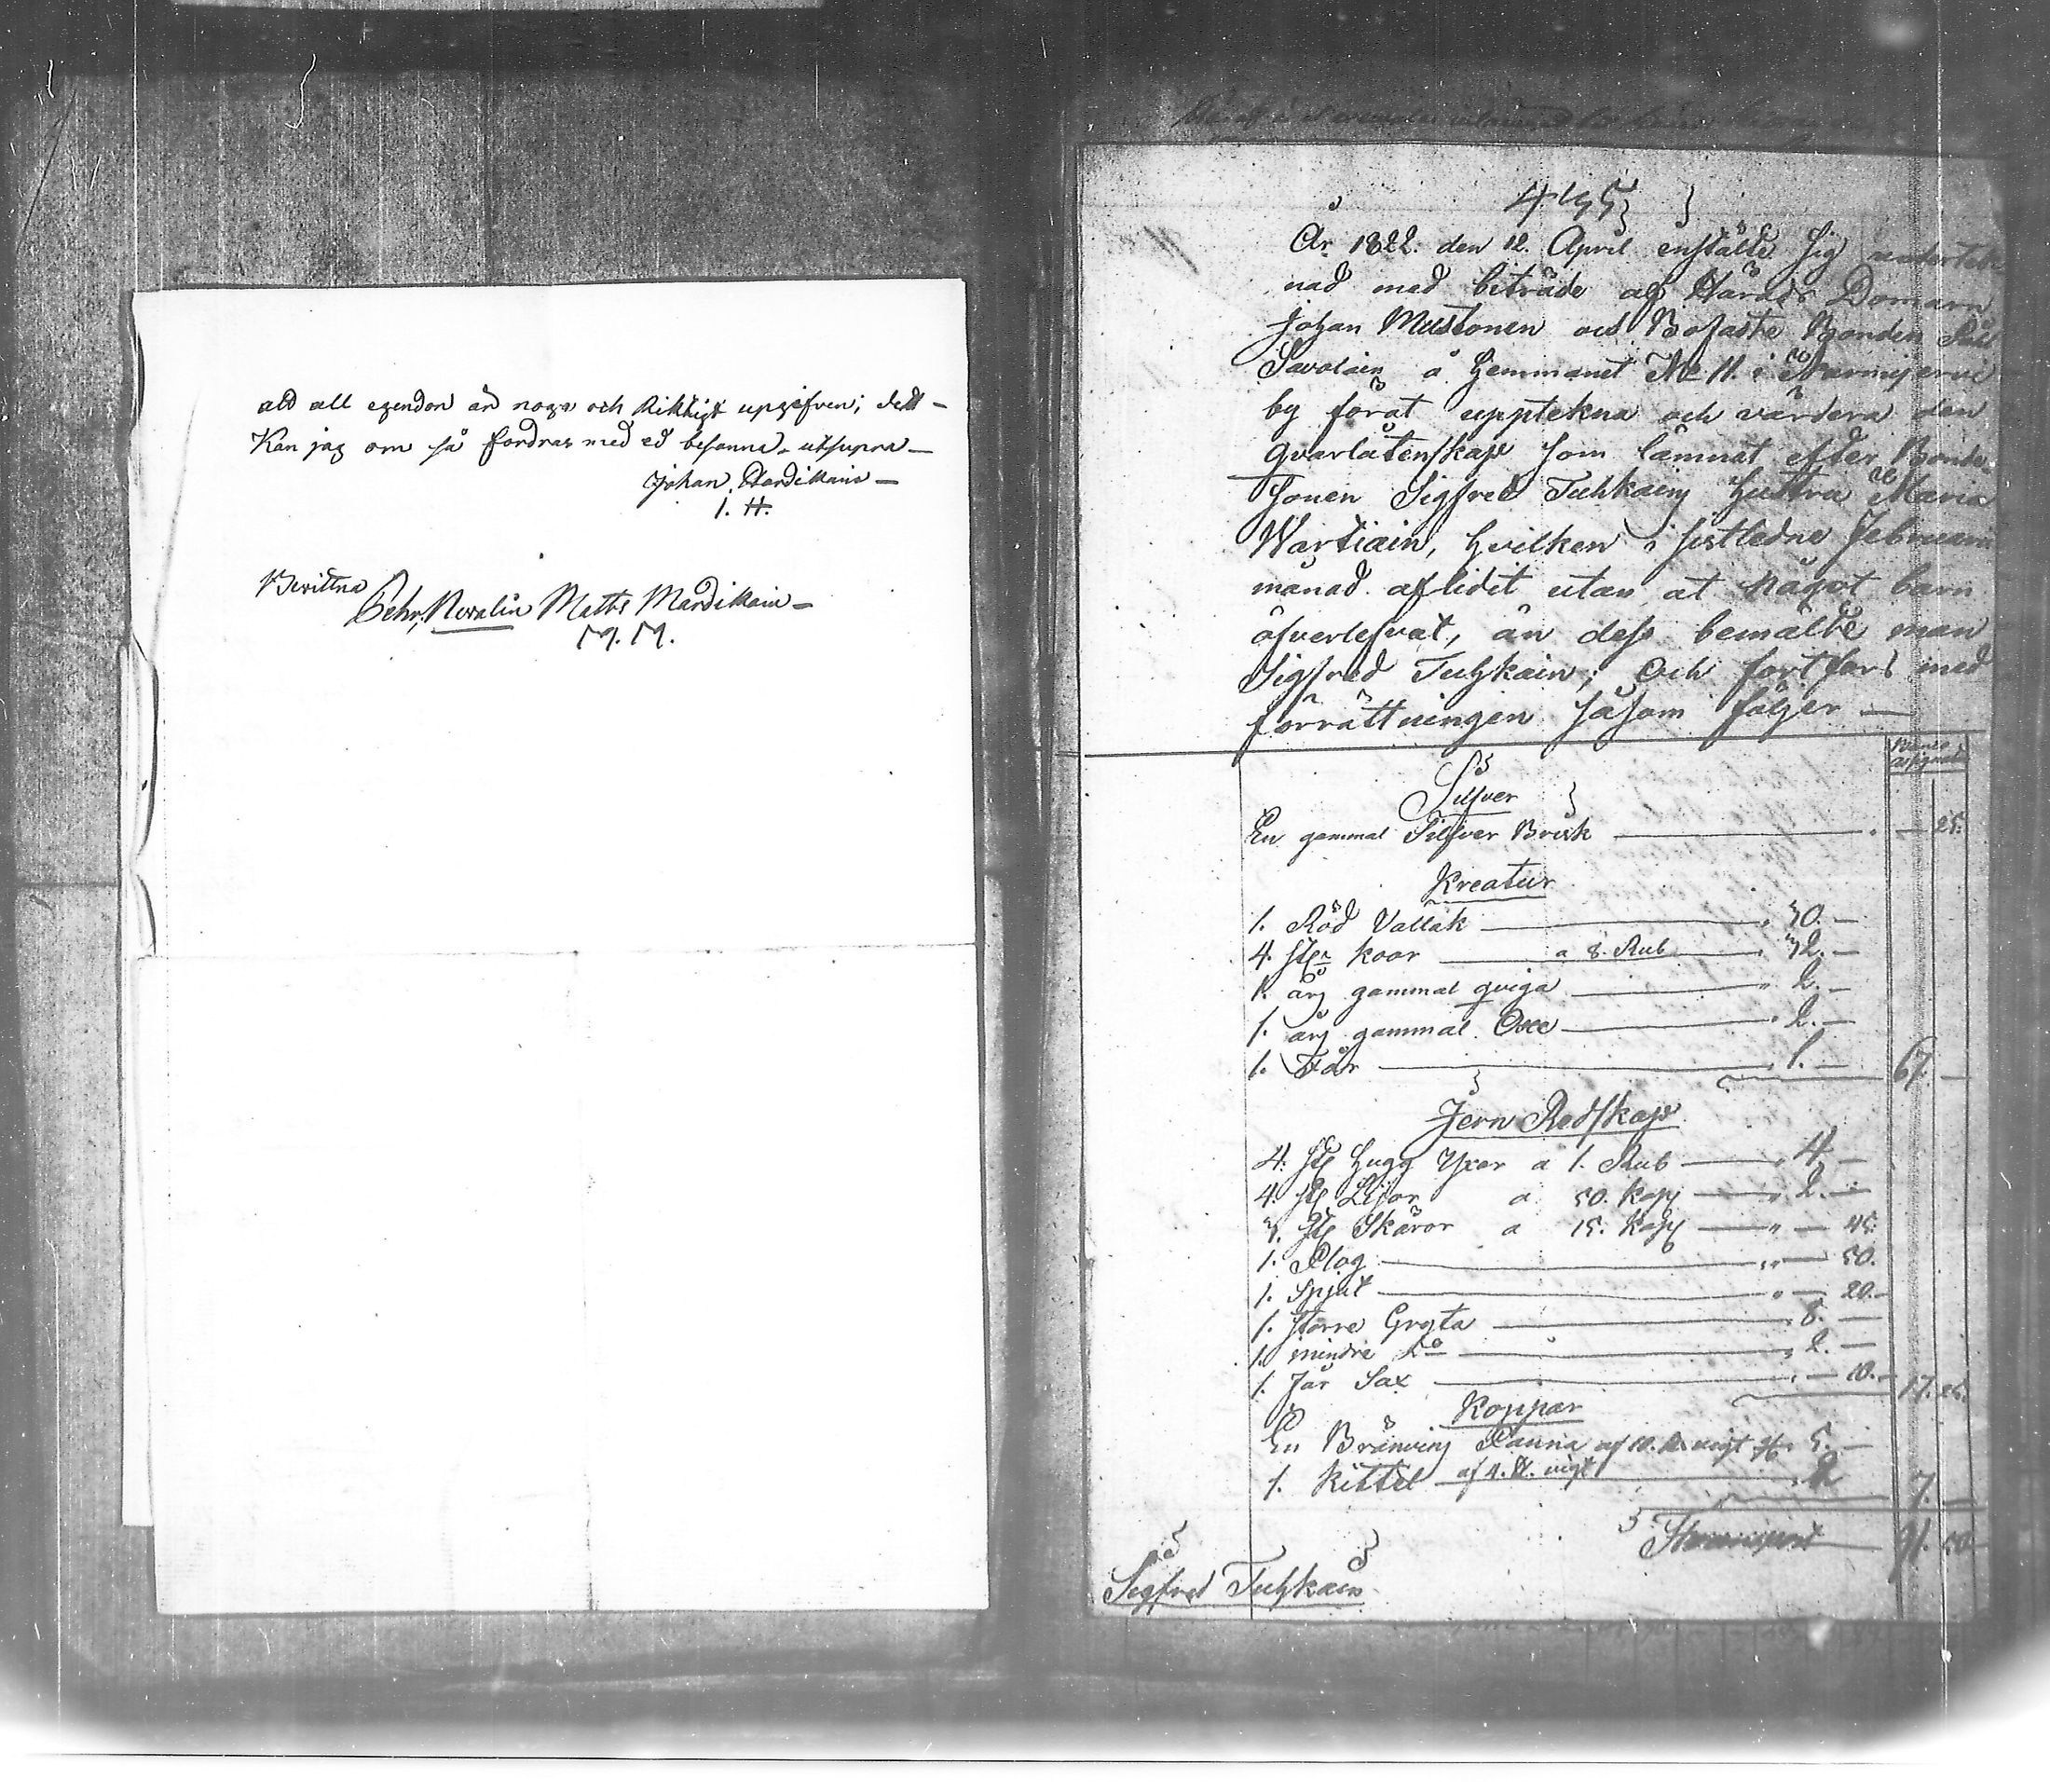 att all egendon är noga och Riktigt upgifven; dett
Kan jag om så fordras med ed besanna. utsupra
Johan Hardikain
I. H.
Bevittna
Pehr Novalin Matts Mardikain
M. M.
År 1822. den 12. April instälte sig undertek
nad med biträde af Härads Domarn
Johan Mustonen och Bofaste Bonden
Savolain å Hemmanet No 11. i
by förat upptekna och värdera den
qvarlåtenskap som lämnat efter Bonde
Sonen Sigfred Tuhkain Hustru Maria
Wartiain, hvilken i sistledne Februarii
månad aflidit utan at något barn
öfverlefvat, än dess bemälte man
Sigfred Tuhkain; Och fortfors med
förrättningen såsom följer
Silfver
En gammal Silfver Brisk — 25.
Kreatur
1. Röd Vallak 30. —
4. st. koor a 8. Rub 32. —
1. årg gammal qviga 2. —
1. årg gammal Oxe 2. —
1. Får 1. — 67. —
Jern Redskap
4. st Hugg Yxor a 1. Rub 4 —
4. st Lijor a 50. kop 2. —
3. st Skäror a 15. kop — 45.
1. Plog — 50.
1. Spjut — 20.
1. större Gryta 8. —
1. mindre Do 2. —
1. Får Sax — 10. 17. 25.
Koppar
En Bränvins Panna af 10. vigt 5. —
1. Kittel af 4. vigt 2 7. —
Transport 91. 50
Sigfred Tuhkain